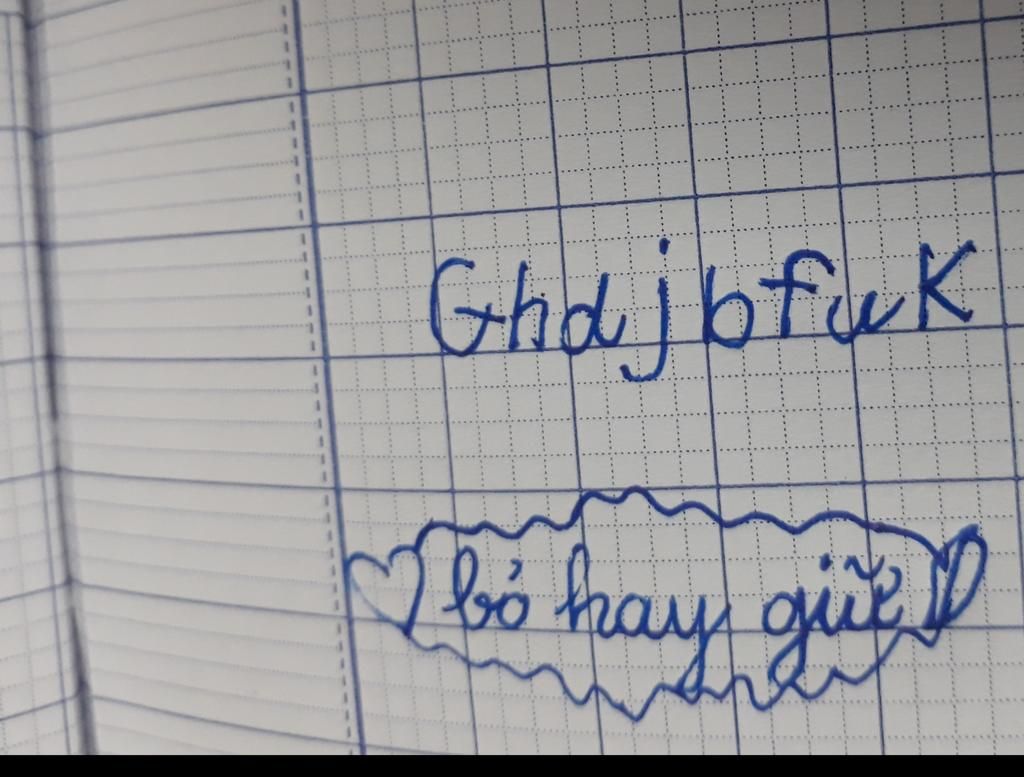 GhdjbfuK
bỏ hay giữ